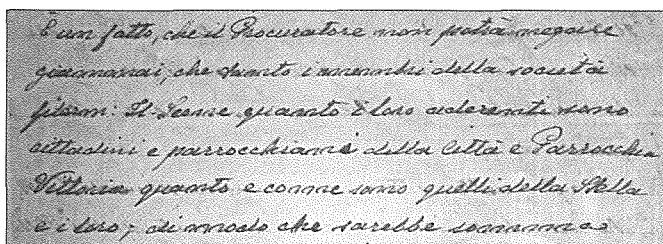 È un fatto, che il Procuratore non potrà negare
giammai, che tanto i membri della società
filarm: Il Leone quanto i loro aderenti sono
cittadini e parrocchiani della Città e Parrocchia
Vittoria quanto e come sono quelli della Stella
e i loro; di modo che sarebbe somma